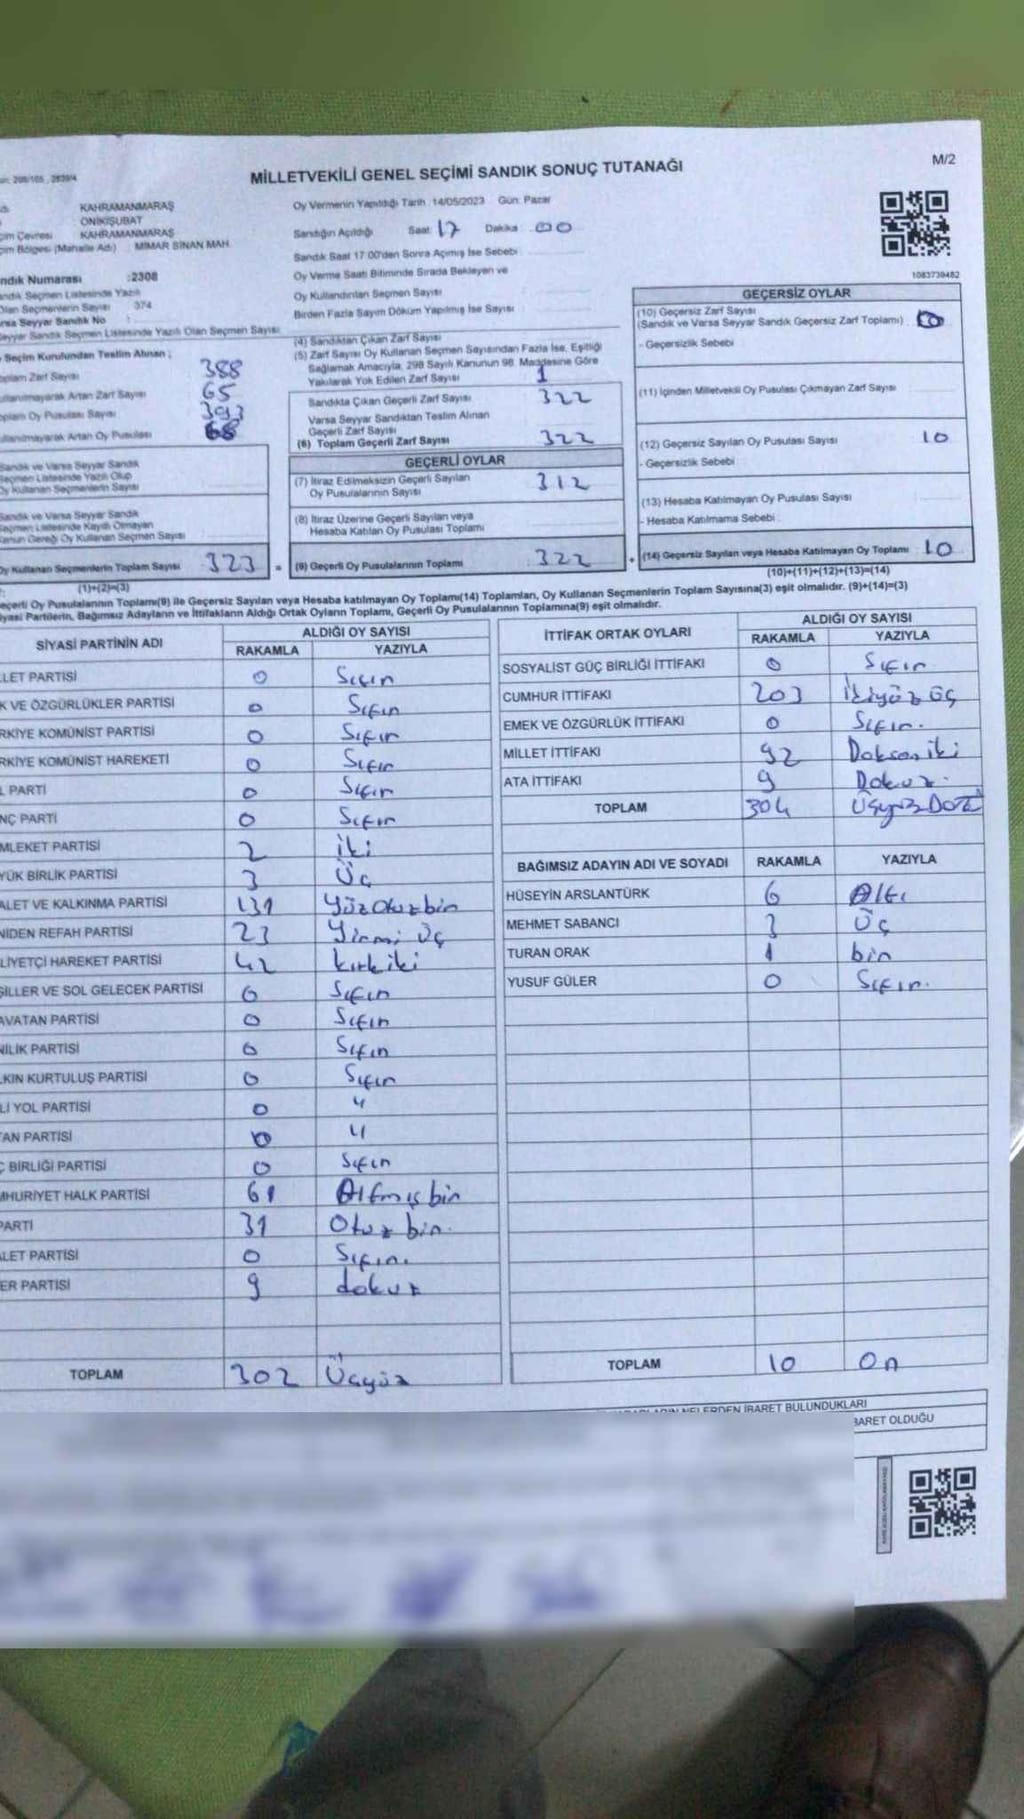 M/2
MİLLETVEKİLİ GENEL SEÇİMİ SANDIK SONUÇ TUTANAĞI
KAHRAMANMARAŞ
ONİKİŞUBAT
çim Çevresi KAHRAMANMARAŞ
çim Bölgesi (Mahalle Adı) : MİMAR SİNAN MAH.
ndık Numarası :2308
andık Seçmen Listesinde Yazılı
Olan Seçmenlerin Sayısı : 374
arsa Seyyar Sandık No :
eyyar Sandık Seçmen Listesinde Yazılı Olan Seçmen Sayısı
Oy Vermenin Yapıldığı Tarih :14/05/2023 Gün: Pazar
Sandığın Açıldığı Saat 17 Dakika 00
Sandık Saat 17:00'den Sonra Açımış İse Sebebi
Oy Verme Saati Bitiminde Sırada Bekleyen ve
Oy Kullandırılan Seçmen Sayısı
Birden Fazla Sayım Döküm Yapılmış İse Sayısı
1083739482
Seçim Kurulundan Teslim Alınan ;
oplam Zarf Sayısı 388
ullanılmayarak Artan Zarf Sayısı 65
oplam Oy Pusulası Sayısı 393
ullanılmayarak Artan Oy Pusulası 68
Sandık ve Varsa Seyyar Sandık
Seçmen Listesinde Yazılı Olup
Oy Kullanan Seçmenlerin Sayısı
Sandık ve Varsa Seyyar Sandık
Seçmen Listesinde Kayıtlı Olmayan
Kanun Gereği Oy Kullanan Seçmen Sayısı
Oy Kullanan Seçmenlerin Toplam Sayısı 323
(1)+(2)=(3)
(4) Sandıktan Çıkan Zarf Sayısı
(5) Zarf Sayısı Oy Kullanan Seçmen Sayısından Fazla İse, Eşitliği
Sağlamak Amacıyla, 298 Sayılı Kanunun 98. Maddesine Göre
Yakılarak Yok Edilen Zarf Sayısı 1
Sandıkta Çıkan Geçerli Zarf Sayısı 322
Varsa Seyyar Sandıktan Teslim Alınan
Geçerli Zarf Sayısı
(6) Toplam Geçerli Zarf Sayısı 322
GEÇERLİ OYLAR
(7) İtiraz Edilmeksizin Geçerli Sayılan
Oy Pusulalarının Sayısı 312
(8) İtiraz Üzerine Geçerli Sayılan veya
Hesaba Katılan Oy Pusulası Toplamı
= (9) Geçerli Oy Pusulalarının Toplamı 322 +
GEÇERSİZ OYLAR
(10) Geçersiz Zarf Sayısı
(Sandık ve Varsa Seyyar Sandık Geçersiz Zarf Toplamı)
- Geçersizlik Sebebi
(11) İçinden Milletvekili Oy Pusulası Çıkmayan Zarf Sayısı
(12) Geçersiz Sayılan Oy Pusulası Sayısı 10
- Geçersizlik Sebebi
(13) Hesaba Katılmayan Oy Pusulası Sayısı
- Hesaba Katılmama Sebebi
(14) Geçersiz Sayılan veya Hesaba Katılmayan Oy Toplamı 10
(10)+(11)+(12)+(13)=(14)
eçerli Oy Pusulalarının Toplamı(9) ile Geçersiz Sayılan veya Hesaba katılmayan Oy Toplamı(14) Toplamları, Oy Kullanan Seçmenlerin Toplam Sayısına(3) eşit olmalıdır. (9)+(14)=(3)
iyasi Partilerin, Bağımsız Adayların ve İttifakların Aldığı Ortak Oyların Toplamı, Geçerli Oy Pusulalarının Toplamına(9) eşit olmalıdır.
SİYASİ PARTİNİN ADI ALDIĞI OY SAYISI
RAKAMLA YAZIYLA
LET PARTİSİ 0 Sıfır
K VE ÖZGÜRLÜKLER PARTİSİ 0 Sıfır
RKİYE KOMÜNİST PARTİSİ 0 Sıfır
RKİYE KOMÜNİST HAREKETİ 0 Sıfır
L PARTİ 0 Sıfır
NÇ PARTİ 0 Sıfır
MLEKET PARTİSİ 2 iki
YÜK BİRLİK PARTİSİ 3 Üç
ALET VE KALKINMA PARTİSİ 131 Yüzotuzbir
NİDEN REFAH PARTİSİ 23 Yirmi üç
LİYETÇİ HAREKET PARTİSİ 42 kırkiki
ŞİLLER VE SOL GELECEK PARTİSİ 0 Sıfır
AVATAN PARTİSİ 0 Sıfır
NİLİK PARTİSİ 0 Sıfır
LKIN KURTULUŞ PARTİSİ 0 Sıfır
Lİ YOL PARTİSİ 0 "
TAN PARTİSİ 0 "
Ç BİRLİĞİ PARTİSİ 0 Sıfır
MHURİYET HALK PARTİSİ 61 Altmış bir
PARTİ 31 Otuz bir.
ALET PARTİSİ 0 Sıfır.
ER PARTİSİ 9 dokuz
TOPLAM 302 Üçyüz
İTTİFAK ORTAK OYLARI ALDIĞI OY SAYISI
RAKAMLA YAZIYLA
SOSYALİST GÜÇ BİRLİĞİ İTTİFAKI 0 Sıfır
CUMHUR İTTİFAKI 203 İkiyüz üç
EMEK VE ÖZGÜRLÜK İTTİFAKI 0 Sıfır.
MİLLET İTTİFAKI 92 Doksaniki
ATA İTTİFAKI 9 Dokuz.
TOPLAM 304
BAĞIMSIZ ADAYIN ADI VE SOYADI RAKAMLA YAZIYLA
HÜSEYİN ARSLANTÜRK 6 Altı
MEHMET SABANCI 3 Üç
TURAN ORAK 1 bir
YUSUF GÜLER 0 Sıfır.
TOPLAM 10 On
NELERDEN İBARET BULUNDUKLARI
BARET OLDUĞU